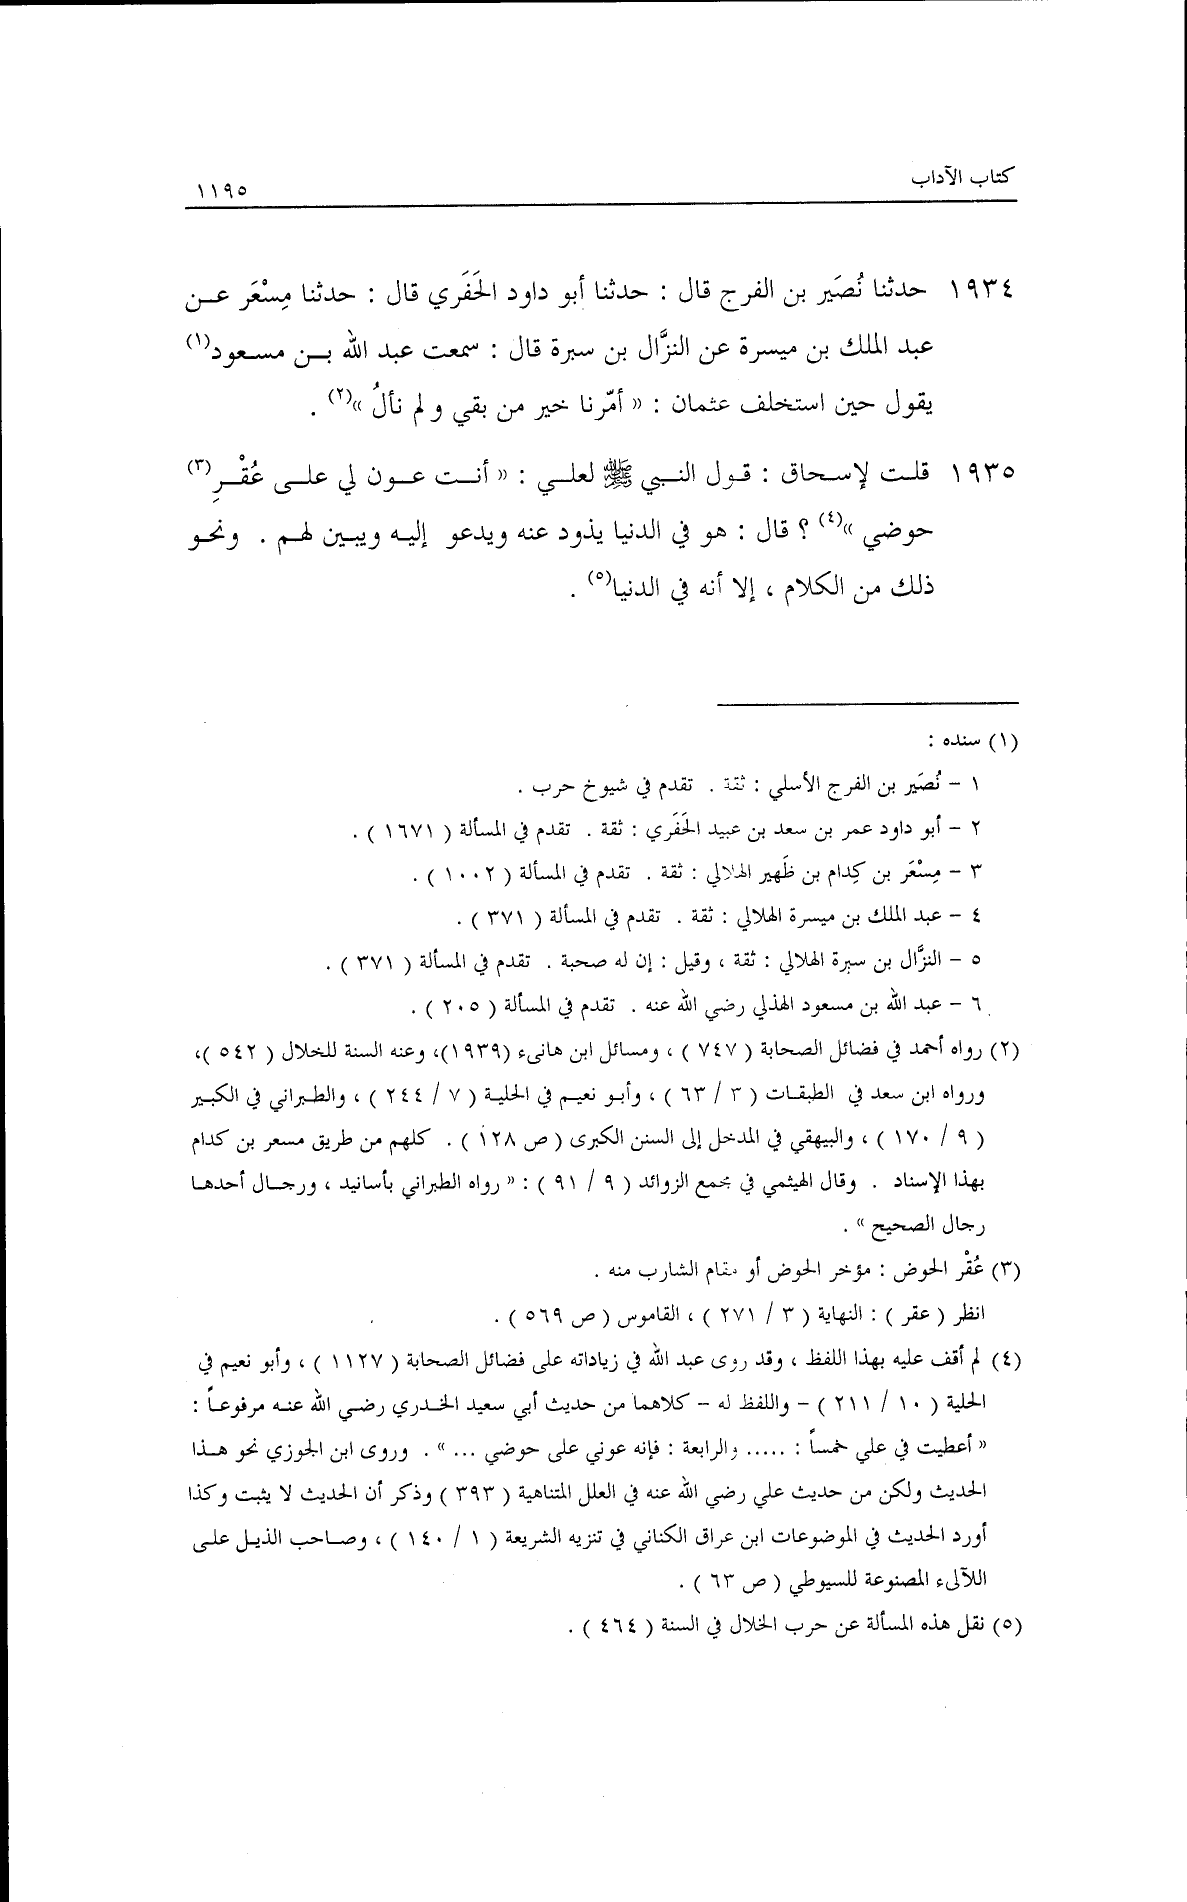 كتاب الآداب
١١٩٥
١٩٣٤ حدثنا نُصَير بن الفرج قال : حدثنا أبو داود الحَفَري قال : حدثنا مِسْعَر عـن
عبد الملك بن ميسرة عن النزَّال بن سبرة قال : سمعت عبد الله بـن مسـعود(١)
يقول حين استخلف عثمان : « أمّرنا خير من بقي و لم نألُ »(٢) .
١٩٣٥ قلت لإسـحاق : قـول النـبي ﷺ لعلـي : « أنـت عـون لي علـى عُقْـرِ(٣)
حوضي »(٤) ؟ قال : هو في الدنيا يذود عنه ويدعو إليـه ويبـين لهـم . ونحـو
ذلك من الكلام ، إلا أنه في الدنيا(٥) .
(١) سنده :
١ – نُصَير بن الفرج الأسلي : ثقة . تقدم في شيوخ حرب .
٢ – أبو داود عمر بن سعد بن عبيد الحَفَري : ثقة . تقدم في المسألة ( ١٦٧١ ) .
٣ – مِسْعَر بن كِدام بن ظَهير الهلالي : ثقة . تقدم في المسألة ( ١٠٠٢ ) .
٤ – عبد الملك بن ميسرة الهلالي : ثقة . تقدم في المسألة ( ٣٧١ ) .
٥ – النزَّال بن سبرة الهلالي : ثقة ، وقيل : إن له صحبة . تقدم في المسألة ( ٣٧١ ) .
٦ – عبد الله بن مسعود الهذلي رضي الله عنه . تقدم في المسألة ( ٢٠٥ ) .
(٢) رواه أحمد في فضائل الصحابة ( ٧٤٧ ) ، ومسائل ابن هانىء (١٩٣٩)، وعنه السنة للخلال ( ٥٤٢ )،
ورواه ابن سعد في الطبقـات ( ٣ / ٦٣ ) ، وأبـو نعيـم في الحليـة ( ٧ / ٢٤٤ ) ، والطـبراني في الكبـير
( ٩ / ١٧٠ ) ، والبيهقي في المدخل إلى السنن الكبرى ( ص ١٢٨ ) . كلهم من طريق مسعر بن كدام
بهذا الإسناد . وقال الهيثمي في مجمع الزوائد ( ٩ / ٩١ ) : « رواه الطبراني بأسانيد ، ورجـال أحدهـا
رجال الصحيح » .
(٣) عُقْر الحوض : مؤخر الحوض أو مقام الشارب منه .
انظر ( عقر ) : النهاية ( ٣ / ٢٧١ ) ، القاموس ( ص ٥٦٩ ) .
(٤) لم أقف عليه بهذا اللفظ ، وقد روى عبد الله في زياداته على فضائل الصحابة ( ١١٢٧ ) ، وأبو نعيم في
الحلية ( ١٠ / ٢١١ ) – واللفظ له – كلاهما من حديث أبي سعيد الخـدري رضـي الله عنـه مرفوعـاً :
« أعطيت في علي خمساً : ..... والرابعة : فإنه عوني على حوضي ... » . وروى ابن الجوزي نحو هـذا
الحديث ولكن من حديث علي رضي الله عنه في العلل المتناهية ( ٣٩٣ ) وذكر أن الحديث لا يثبت وكذا
أورد الحديث في الموضوعات ابن عراق الكناني في تنزيه الشريعة ( ١ / ١٤٠ ) ، وصـاحب الذيـل علـى
اللآلىء المصنوعة للسيوطي ( ص ٦٣ ) .
(٥) نقل هذه المسألة عن حرب الخلال في السنة ( ٤٦٤ ) .